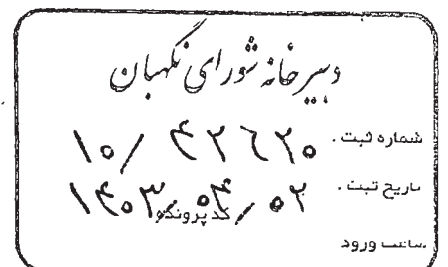 دبیرخانه شورای نگهبان
شماره ثبت . ۱۰/ ۴۲۶۲۰
تاریخ ثبت . ۱۴۰۳/۰۴/۰۲
کد پرونده
ساعت ورود